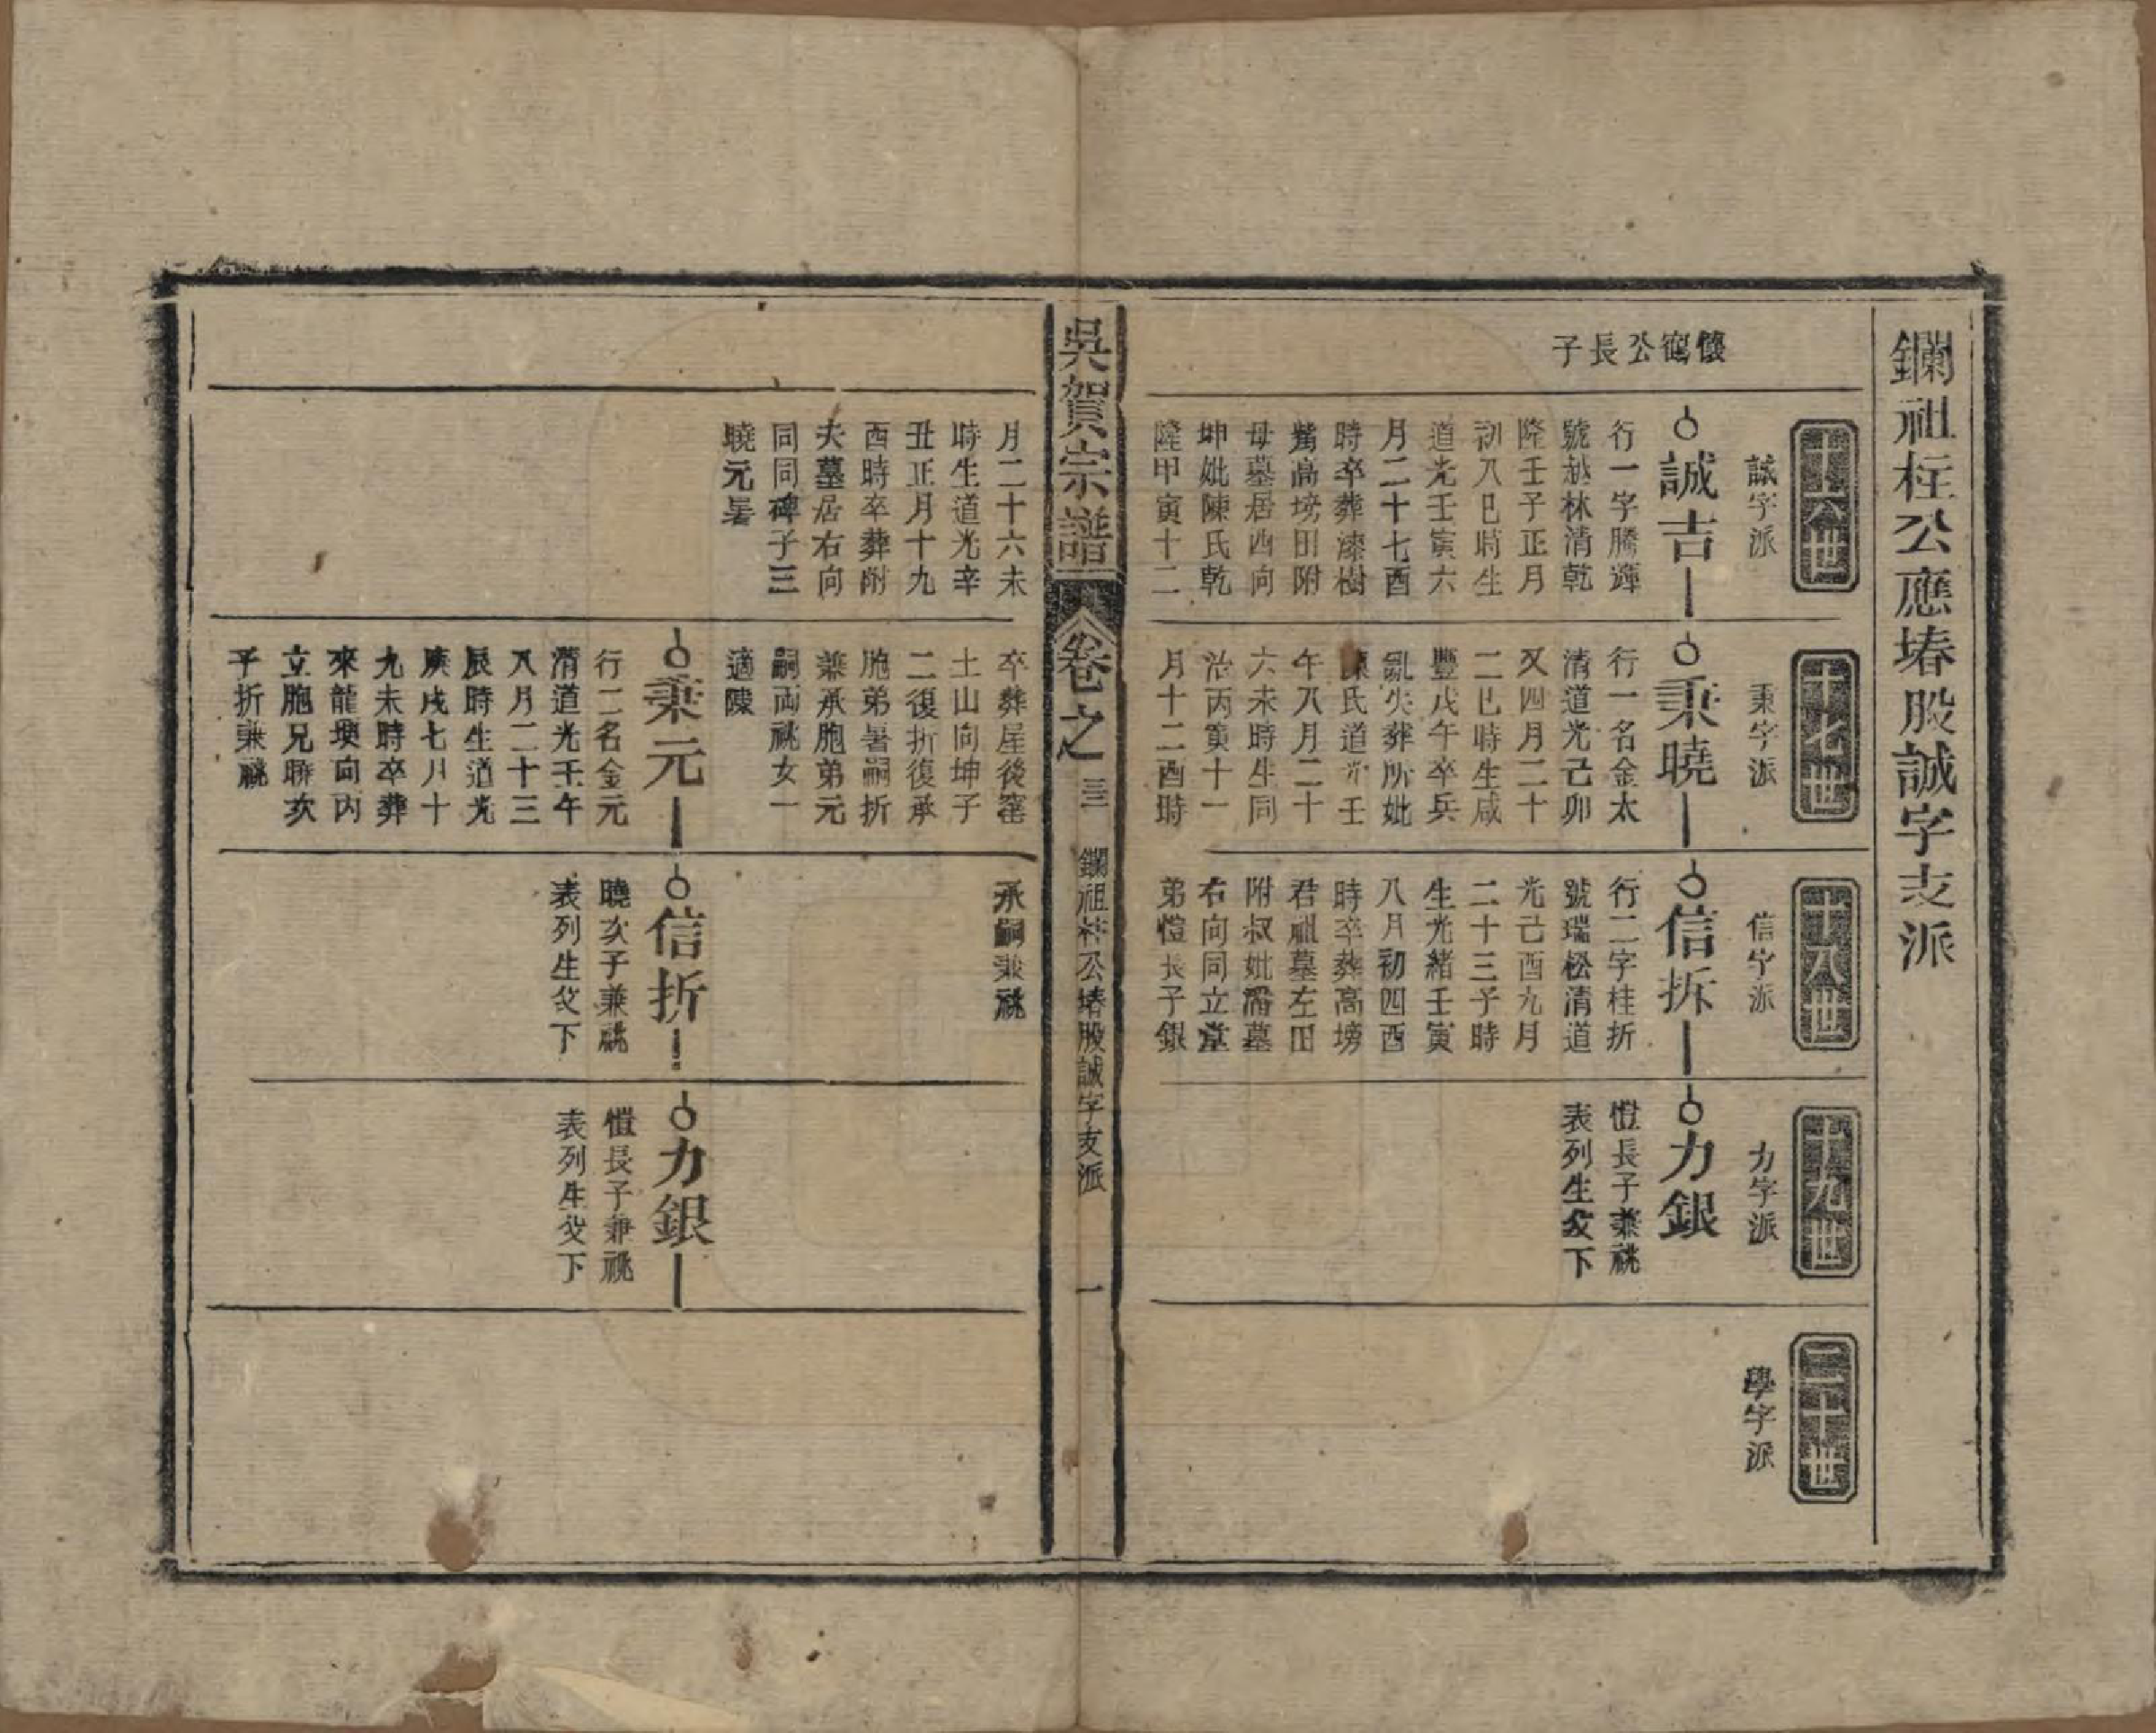 鑭祖柱公應堾股誠字支派
十六世
誠字派
十七世
秉字派
十八世
信字派
十九世
力字派
二十世
學字派
公長子
誠吉
行一字騰輝
號越林清乾
隆壬子正月
初八巳時生
道光壬寅六
月二十七酉
時卒葬漆樹
觜高塝田附
母墓居西向
坤妣陳氏乾
隆甲寅十二
秉曉
行一名金太
清道光己卯
又四月二十
二巳時生咸
豐戊午卒兵
亂失葬所妣
陳氏道光壬
午八月二十
六未時生同
治丙寅十一
月十二酉時
信折
行二字桂折
號瑞松清道
光己酉九月
二十三子時
生光緒壬寅
八月初四酉
時卒葬高塝
君祖墓左田
附叔妣潘墓
右向同立堂
弟愷長子銀
力銀
愷長子兼祧
表列生父下
吳賀宗譜
卷之三
鑭祖柱公堾股誠字支派
一
月二十六未
時生道光辛
丑正月十九
酉時卒葬附
夫墓居右向
同同碑子三
曉元暑
卒葬屋後窰
土山向坤子
二復折復承
胞弟暑嗣折
兼承胞弟元
嗣両祧女一
適陳
承嗣兼祧
秉元
行二名金元
清道光壬午
八月二十三
辰時生道光
庚戌七月十
九未時卒葬
來龍塽向丙
立胞兄曉次
子折兼祧
信折
曉次子兼祧
表列生父下
力銀
愷長子兼祧
表列生父下